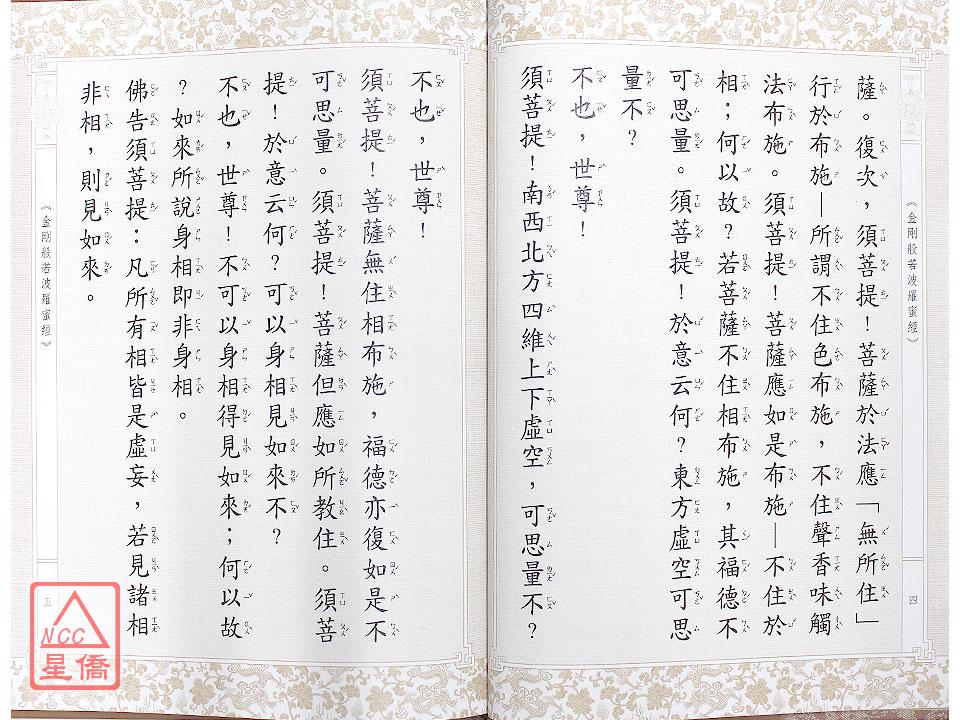 《金剛般若波羅蜜經》
四
薩。復次，須菩提！菩薩於法應「無所住」
行於布施—所謂不住色布施，不住聲香味觸
法布施。須菩提！菩薩應如是布施—不住於
相；何以故？若菩薩不住相布施，其福德不
可思量。須菩提！於意云何？東方虛空可思
量不？
不也，世尊！
須菩提！南西北方四維上下虛空，可思量不？
不也，世尊！
須菩提！菩薩無住相布施，福德亦復如是不
可思量。須菩提！菩薩但應如所教住。須菩
提！於意云何？可以身相見如來不？
不也，世尊！不可以身相得見如來；何以故
？如來所說身相即非身相。
佛告須菩提：凡所有相皆是虛妄，若見諸相
非相，則見如來。
《金剛般若波羅蜜經》
五
NCC
星僑